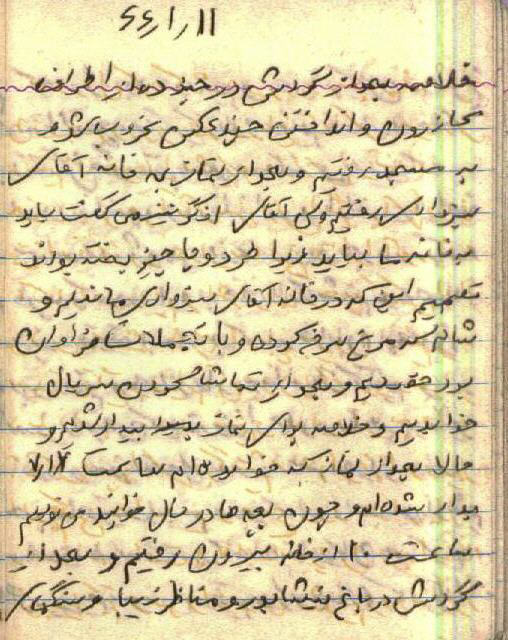 ۶۶/۱/۱۱
خلاصه بعد از گردش در چند ده از اطراف
کازرون و انداختن چند عکس غروب
به مسجد رفتیم و بعد از نماز به خانه آقای
سبزواری رفتیم ولی آقای می گفت باید
به خانه ما بیایید زیرا هر دو ما چیز پخته بودند
تصمیم این که در خانه آقای سبزواری ماندیم و
شام مرغ سرخ کرده و با تجملات فراوان
بود خوردیم و بعد از تماشا کردن سریال
خوابیدیم و خلاصه برای نماز بیدار شدیم و
حالا بعد از نماز که خوابیده ام ساعت
بیدار شده ام و چون بچه ها در حال خوابند می نویسم
ساعت ۱۰ از خانه بیرون رفتیم و بعد از
گردش در باغ نیشابور و مناظر زیبا و سنگهای